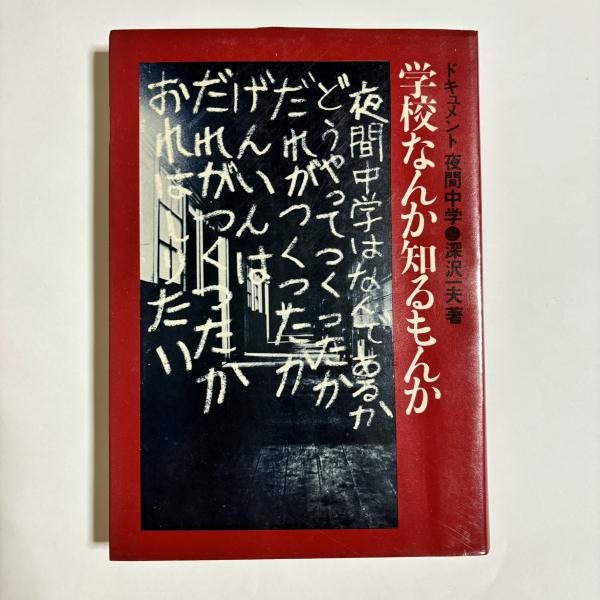 ドキュメント 夜間中学●深沢一夫 著
学校なんか知るもんか
夜間中学はなんであるか
どうやってつくったか
だれがつくったか
げんいんは
だれがつくったか
おれはしりたい